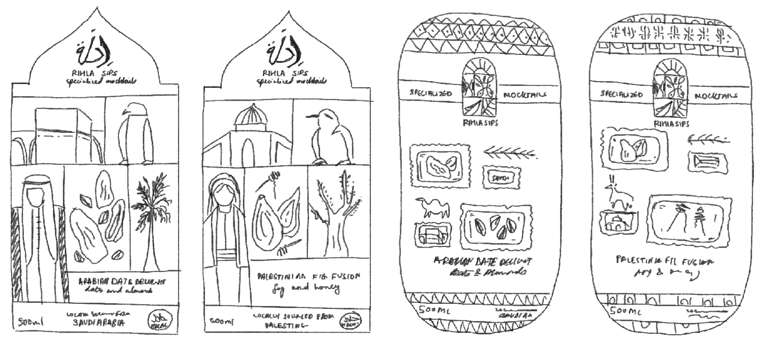 رحلة
RIHLA SIPS
specialized mocktails
ARABIAN DATE DELIGHT
dates and almonds
500ml
LOCALLY SOURCED FROM
SAUDI ARABIA
حلال
HALAL
رحلة
RIHLA SIPS
specialized mocktails
PALESTINIAN FIG FUSION
fig and honey
500ml
LOCALLY SOURCED FROM
PALESTINE
حلال
SPECIALIZED MOCKTAILS
RIHLA SIPS
ARABIAN DATE DELIGHT
Dates & Almonds
500ML
SPECIALIZED MOCKTAILS
RIHLA SIPS
PALESTINIAN FIG FUSION
500ML